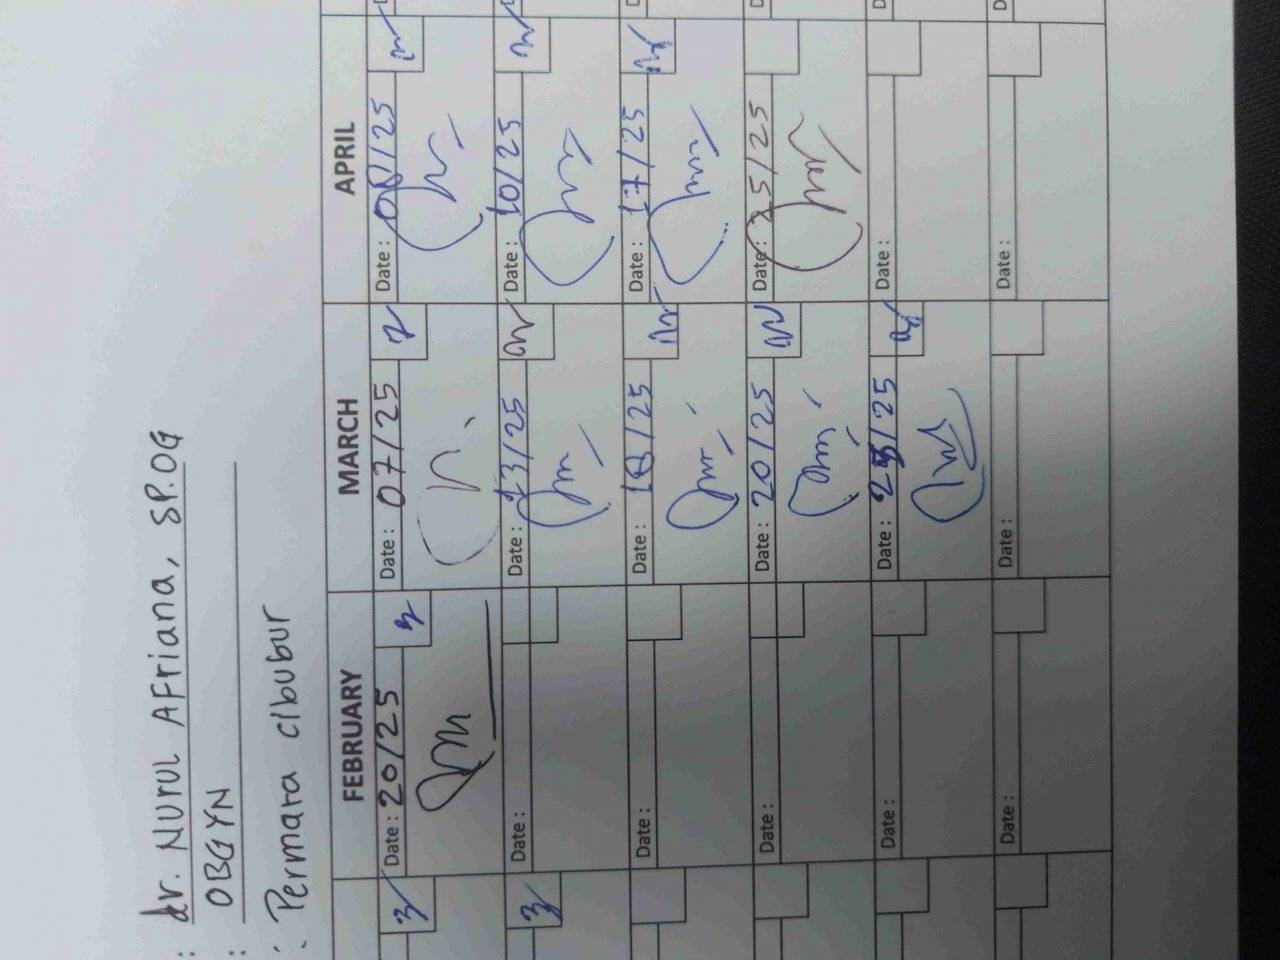 : dr. Nurul Afriana, SP.OG
: OBGYN
: Permata Cibubur
FEBRUARY MARCH APRIL
Date : 20/25 Date : 07/25 Date : 08/25
Date : Date : 13/25 Date : 10/25
Date : Date : 18/25 Date : 17/25
Date : Date : 20/25 Date : 25/25
Date : Date : 25/25 Date :
Date : Date : Date :